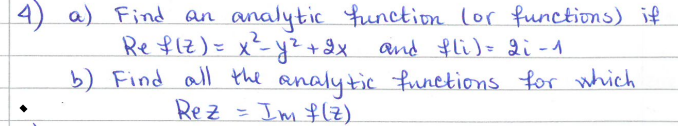 4) a) Find an analytic function (or functions) if
Re f(z) = x²-y²+2x and f(i) = 2i-1
b) Find all the analytic functions for which
Re z = Im f(z)